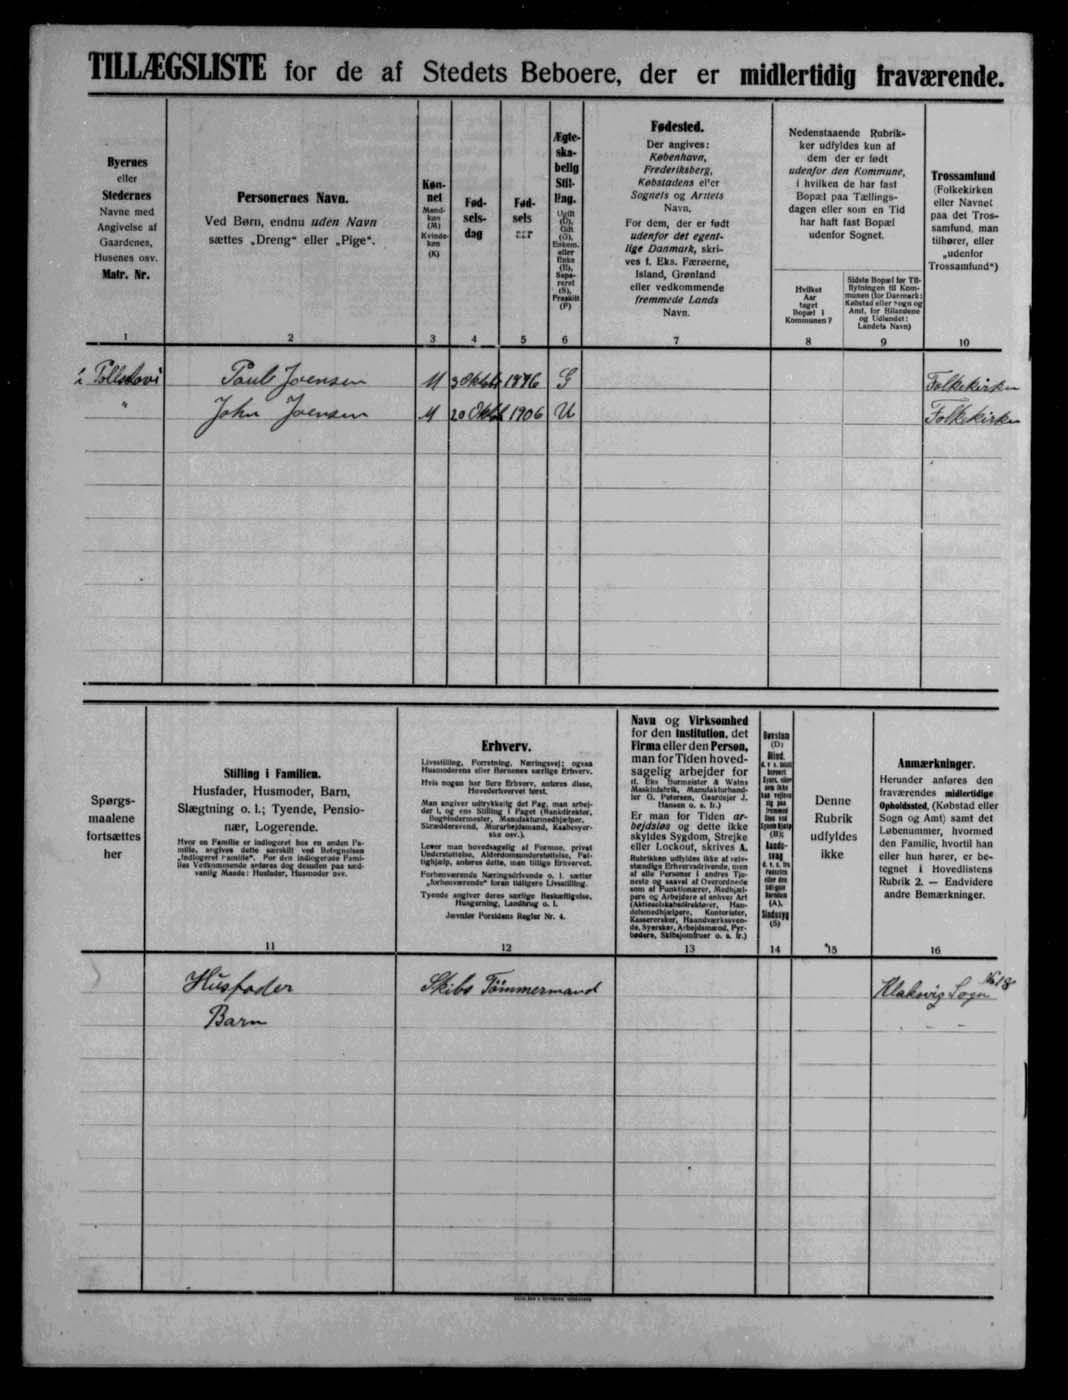 TILLÆGSLISTE for de af Stedets Beboere, der er midlertidig fraværende.
Byernes
eller
Stedernes
Navne med
Angivelse af
Gaardenes,
Husenes osv.
Matr. Nr.
Personernes Navn.
Ved Børn, endnu uden Navn
sættes „Dreng“ eller „Pige“.
Køn-
net
Mand-
køn
(M)
Kvinde-
køn
(K)
Fød-
sels-
dag
Fød-
sels
aar
Ægte-
ska-
belig
Stil-
ling.
Ugift
(U),
Gift
(G),
Enkem.
eller
Enke
(E),
Sepa-
reret
(S),
Fraskilt
(F)
Fødested.
Der angives:
København,
Frederiksberg,
Købstadens eller
Sognets og Amtets
Navn.
For dem, der er født
udenfor det egent-
lige Danmark, skri-
ves f. Eks. Færøerne,
Island, Grønland
eller vedkommende
fremmede Lands
Navn.
Nedenstaaende Rubrik-
ker udfyldes kun af
dem der er født
udenfor den Kommune,
i hvilken de har fast
Bopæl paa Tællings-
dagen eller som en Tid
har haft fast Bopæl
udenfor Sognet.
Hvilket
Aar
taget
Bopæl i
Kommunen?
Sidste Bopæl før Til-
flytningen til Kom-
munen (for Danmark:
Købstad eller Sogn og
Amt, for Bilandene
og Udlandet:
Landets Navn)
Trossamfund
(Folkekirken
eller Navnet
paa det Tros-
samfund, man
tilhører, eller
„udenfor
Trossamfund“)
1 2 3 4 5 6 7 8 9 10
Poul Joensen M 3 Oktob 1876 G Folkekirken
" John Joensen M 20 Oktb 1906 U Folkekirken
Spørgs-
maalene
fortsættes
her
Stilling i Familien.
Husfader, Husmoder, Barn,
Slægtning o. l.; Tyende, Pensio-
nær, Logerende.
Hvor en Familie er indlogeret hos en anden Fa-
milie, angives dette særskilt ved Betegnelsen
„indlogeret Familie“. For den indlogerede Fami-
lies Vedkommende anføres dog desuden paa sæd-
vanlig Maade: Husfader, Husmoder osv.
Erhverv.
Livsstilling, Forretning, Næringsvej; ogsaa
Husmoderens eller Børnenes særlige Erhverv.
Hvis nogen har flere Erhverv, anføres disse,
Hovederhvervet først.
Man angiver udtrykkelig det Fag, man arbej-
der i, og ens Stilling i Faget (Bankdirektør,
Bogbindermester, Manufakturmedhjælper,
Skræddersvend, Murarbejdsmand, Kaabesyer-
ske osv.).
Lever man hovedsagelig af Formue, privat
Understøttelse, Alderdomsunderstøttelse, Fat-
tighjælp, anføres dette, men tillige Erhvervet.
Forhenværende Næringsdrivende o. l. sætter
„forhenværende“ foran tidligere Livsstilling.
Tyende angiver deres særlige Beskæftigelse,
Husgerning, Landbrug o. l.
Jævnfør Forsidens Regler Nr. 4.
Navn og Virksomhed
for den Institution, det
Firma eller den Person,
man for Tiden hoved-
sagelig arbejder for
(f. Eks. Burmeister & Wains
Maskinfabrik, Manufakturhand-
ler G. Petersen, Gaardejer J.
Hansen o. s. fr.)
Er man for Tiden ar-
bejdsløs og dette ikke
skyldes Sygdom, Strejke
eller Lockout, skrives A.
Rubrikken udfyldes ikke af selv-
stændige Erhvervsdrivende, men
af alle Personer i andres Tje-
neste og saavel af Overordnede
som af Funktionærer, Medhjæl-
pere og Arbejdere af enhver Art
(Aktieselskabsdirektører, Han-
delsmedhjælpere, Kontorister,
Kassererske, Haandværkssven-
de, Syersker, Arbejdsmænd, Fyr-
bødere, Skibsjomfruer o. s. fr.)
Døvstum
(D)
Blind,
Aands-
svag
(A),
Sindssyg
(S)
Denne
Rubrik
udfyldes
ikke
Anmærkninger.
Herunder anføres den
fraværendes midlertidige
Opholdssted, (Købstad eller
Sogn og Amt) samt det
Løbenummer, hvormed
den Familie, hvortil han
eller hun hører, er be-
tegnet i Hovedlistens
Rubrik 2. — Endvidere
andre Bemærkninger.
11 12 13 14 15 16
Husfader Skibs Tømmermand Klaksvig Sogn No 18
Barn